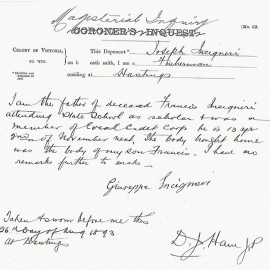 Magisterial Inquiry
CORONER'S INQUEST.
[No. 23.
COLONY OF VICTORIA, This Deponent Joseph Incigneri
TO WIT. on h oath saith, I am a Fisherman
residing at Hastings
I am the father of deceased Francis Incigneri
attending State School as scholar &
member of Local Cadet Corp he is 13 yr
of November next. The body brought home
was the body of my son Francis. I have no
remarks further to make
Giuseppe Incigneri
Taken & sworn before me this
26th day of Aug 1893
at Hastings
D. J. J.P.